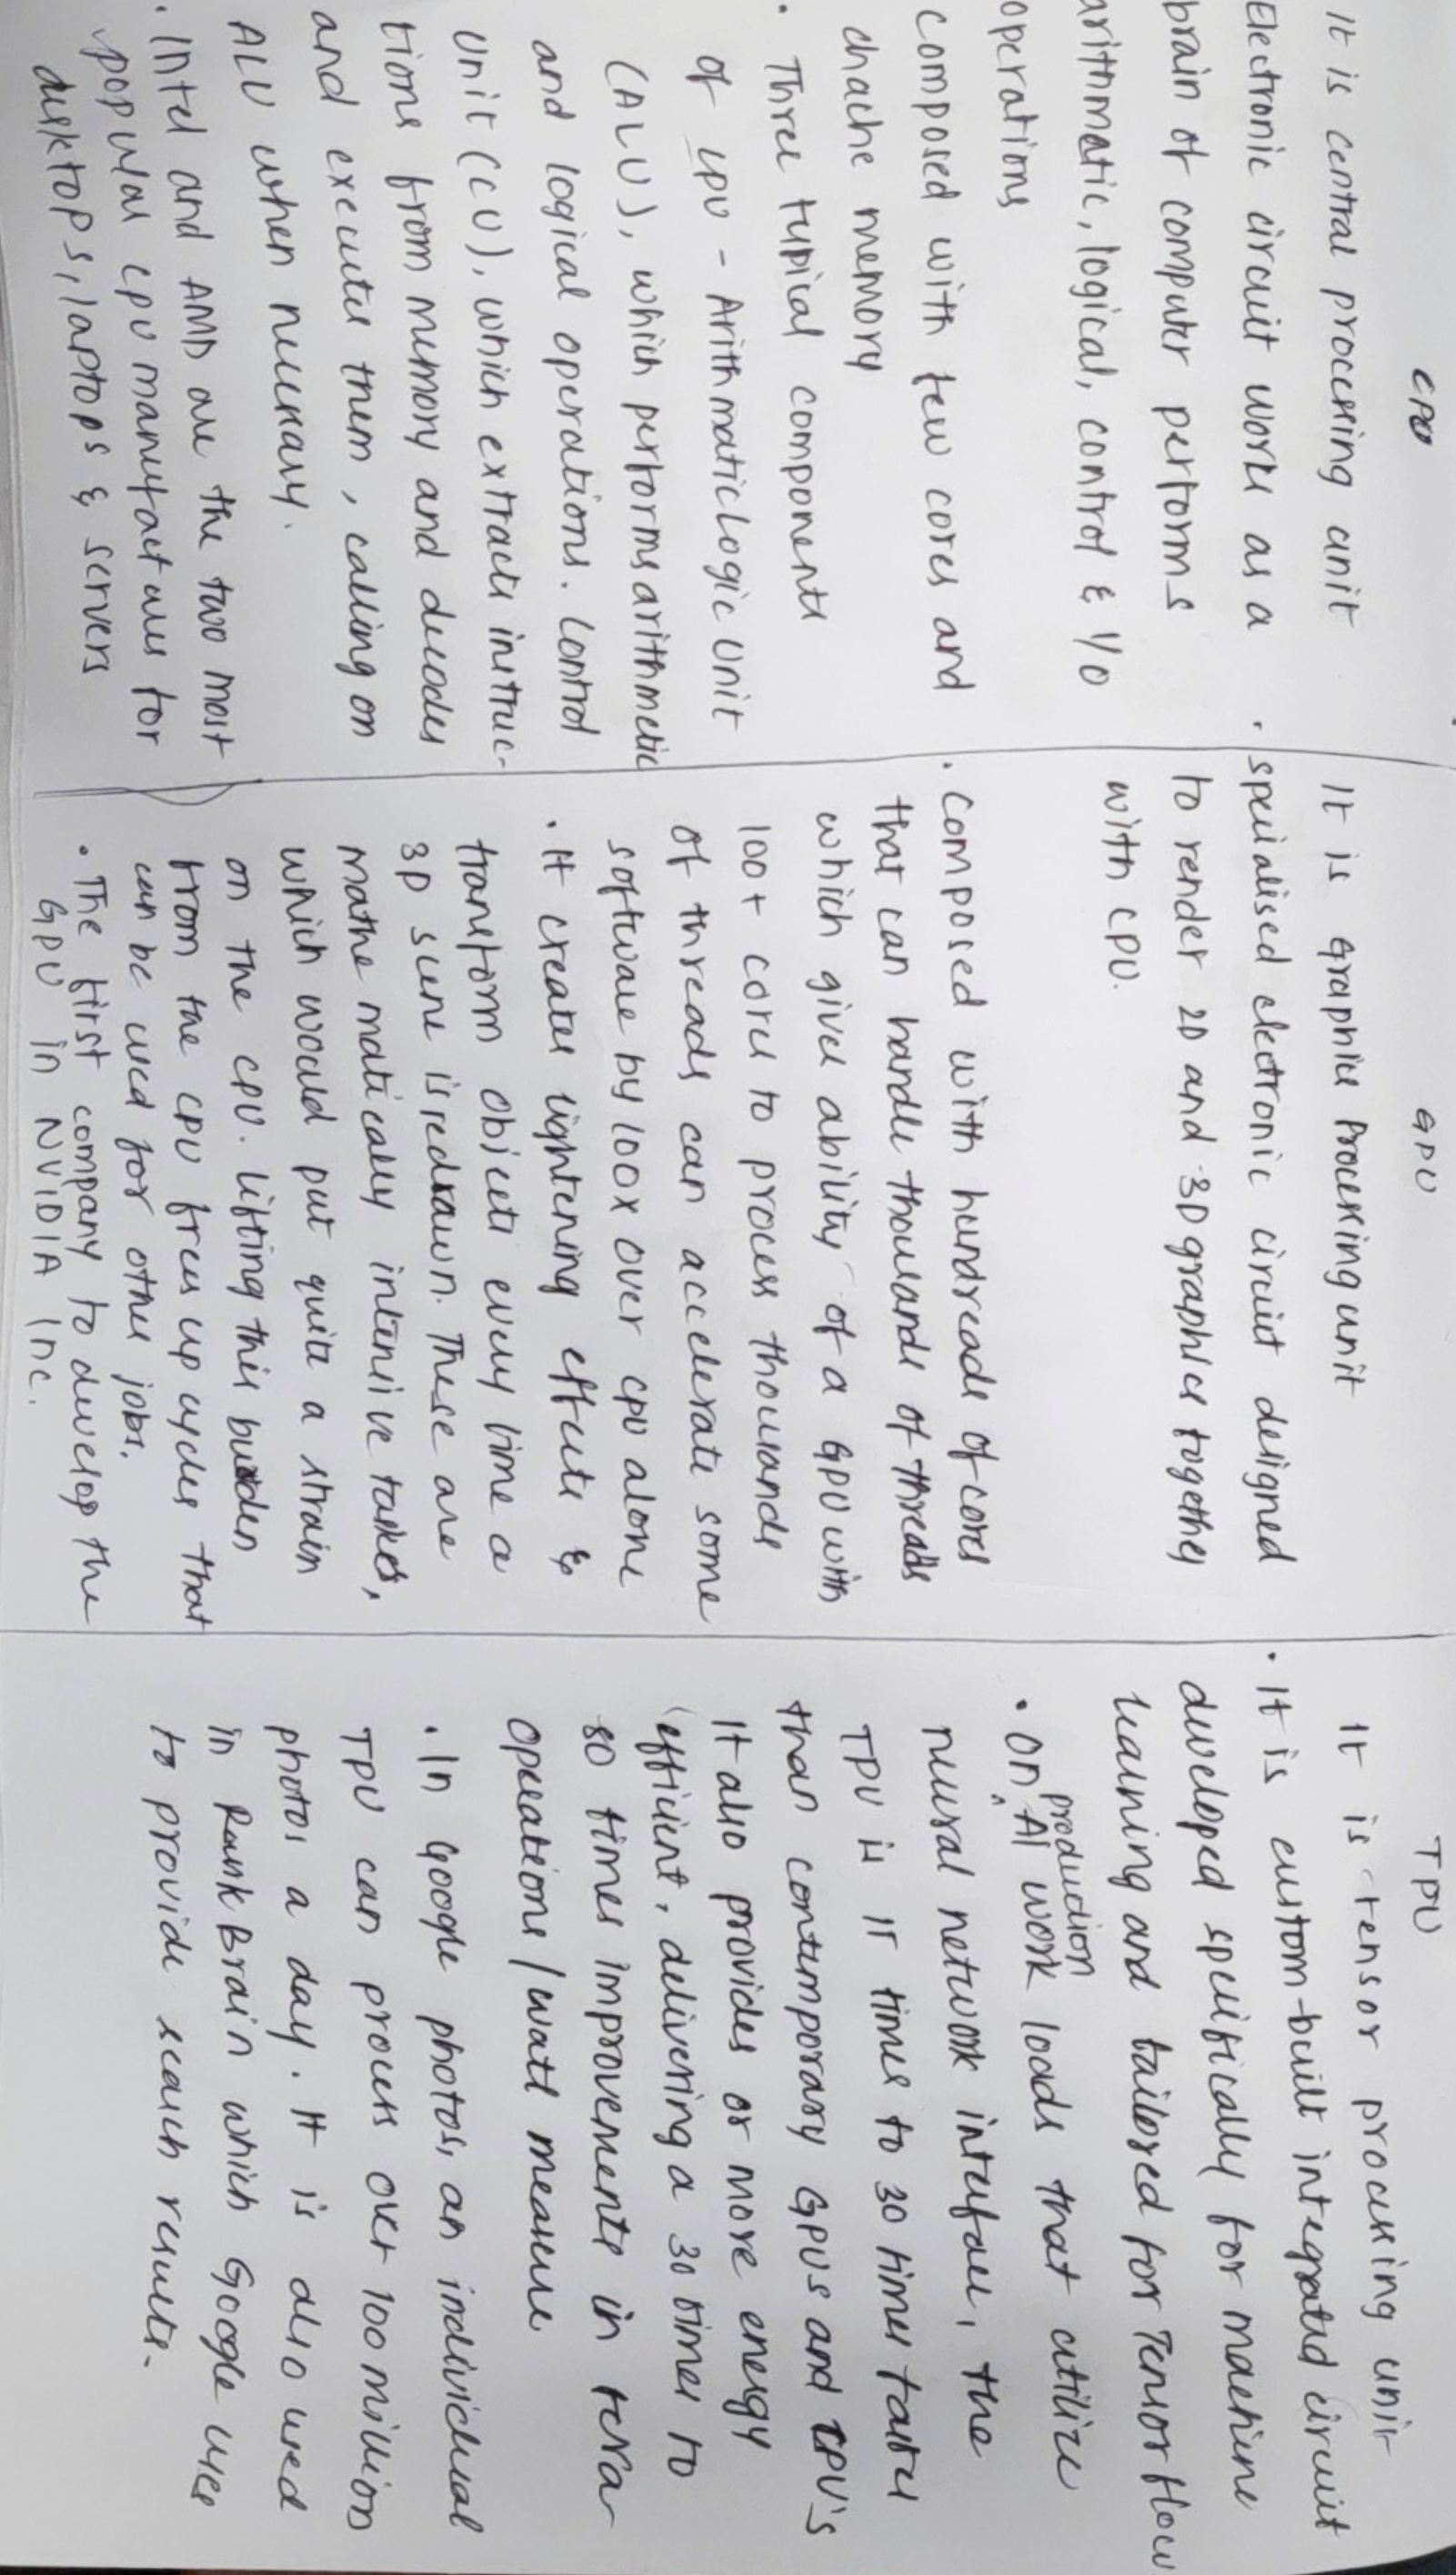 CPU
It is central processing unit
Electronic circuit work as a
brain of computer performs
arithmatic, logical, control & I/O
operations
composed with few cores and
chache memory
· Three typical components
of CPU - Arithmatic Logic Unit
(ALU), which performs arithmetic
and logical operations. Control
Unit (CU), which extracts instruc-
tions from memory and decodes
and executes them, calling on
ALU when necessary.
· Intel and AMD are the two most
popular CPU manufactures for
desktops, laptops & servers
GPU
It is graphics Processing unit
· specialised electronic circuit designed
to render 2D and 3D graphics together
with CPU.
· composed with hundreads of cores
that can handle thousands of threads
which gives ability of a GPU with
100+ cores to process thousands
of threads can accelerate some
software by 100x over CPU alone
· It creates lightening effects &
transform objects every time a
3D scene is redrawn. These are
mathematically intensive tasks,
which would put quite a strain
on the CPU. Lifting this burden
from the CPU frees up cycles that
can be used for other jobs.
· The first company to develop the
GPU in NVIDIA Inc.
TPU
It is tensor processing unit
· It is custom-built integrated circuit
developed specifically for machine
learning and tailored for Tensor flow
· On production AI work loads that utilize
neural network interface, the
TPU is 15 times to 30 times faster
than contemporary GPUs and CPU's
It also provides or more energy
efficient, delivering a 30 times to
80 times improvements in tera
operations/watt measure
· In Google photos, an individual
TPU can process over 100 million
photos a day. It is also used
in RankBrain which Google uses
to provide search results.